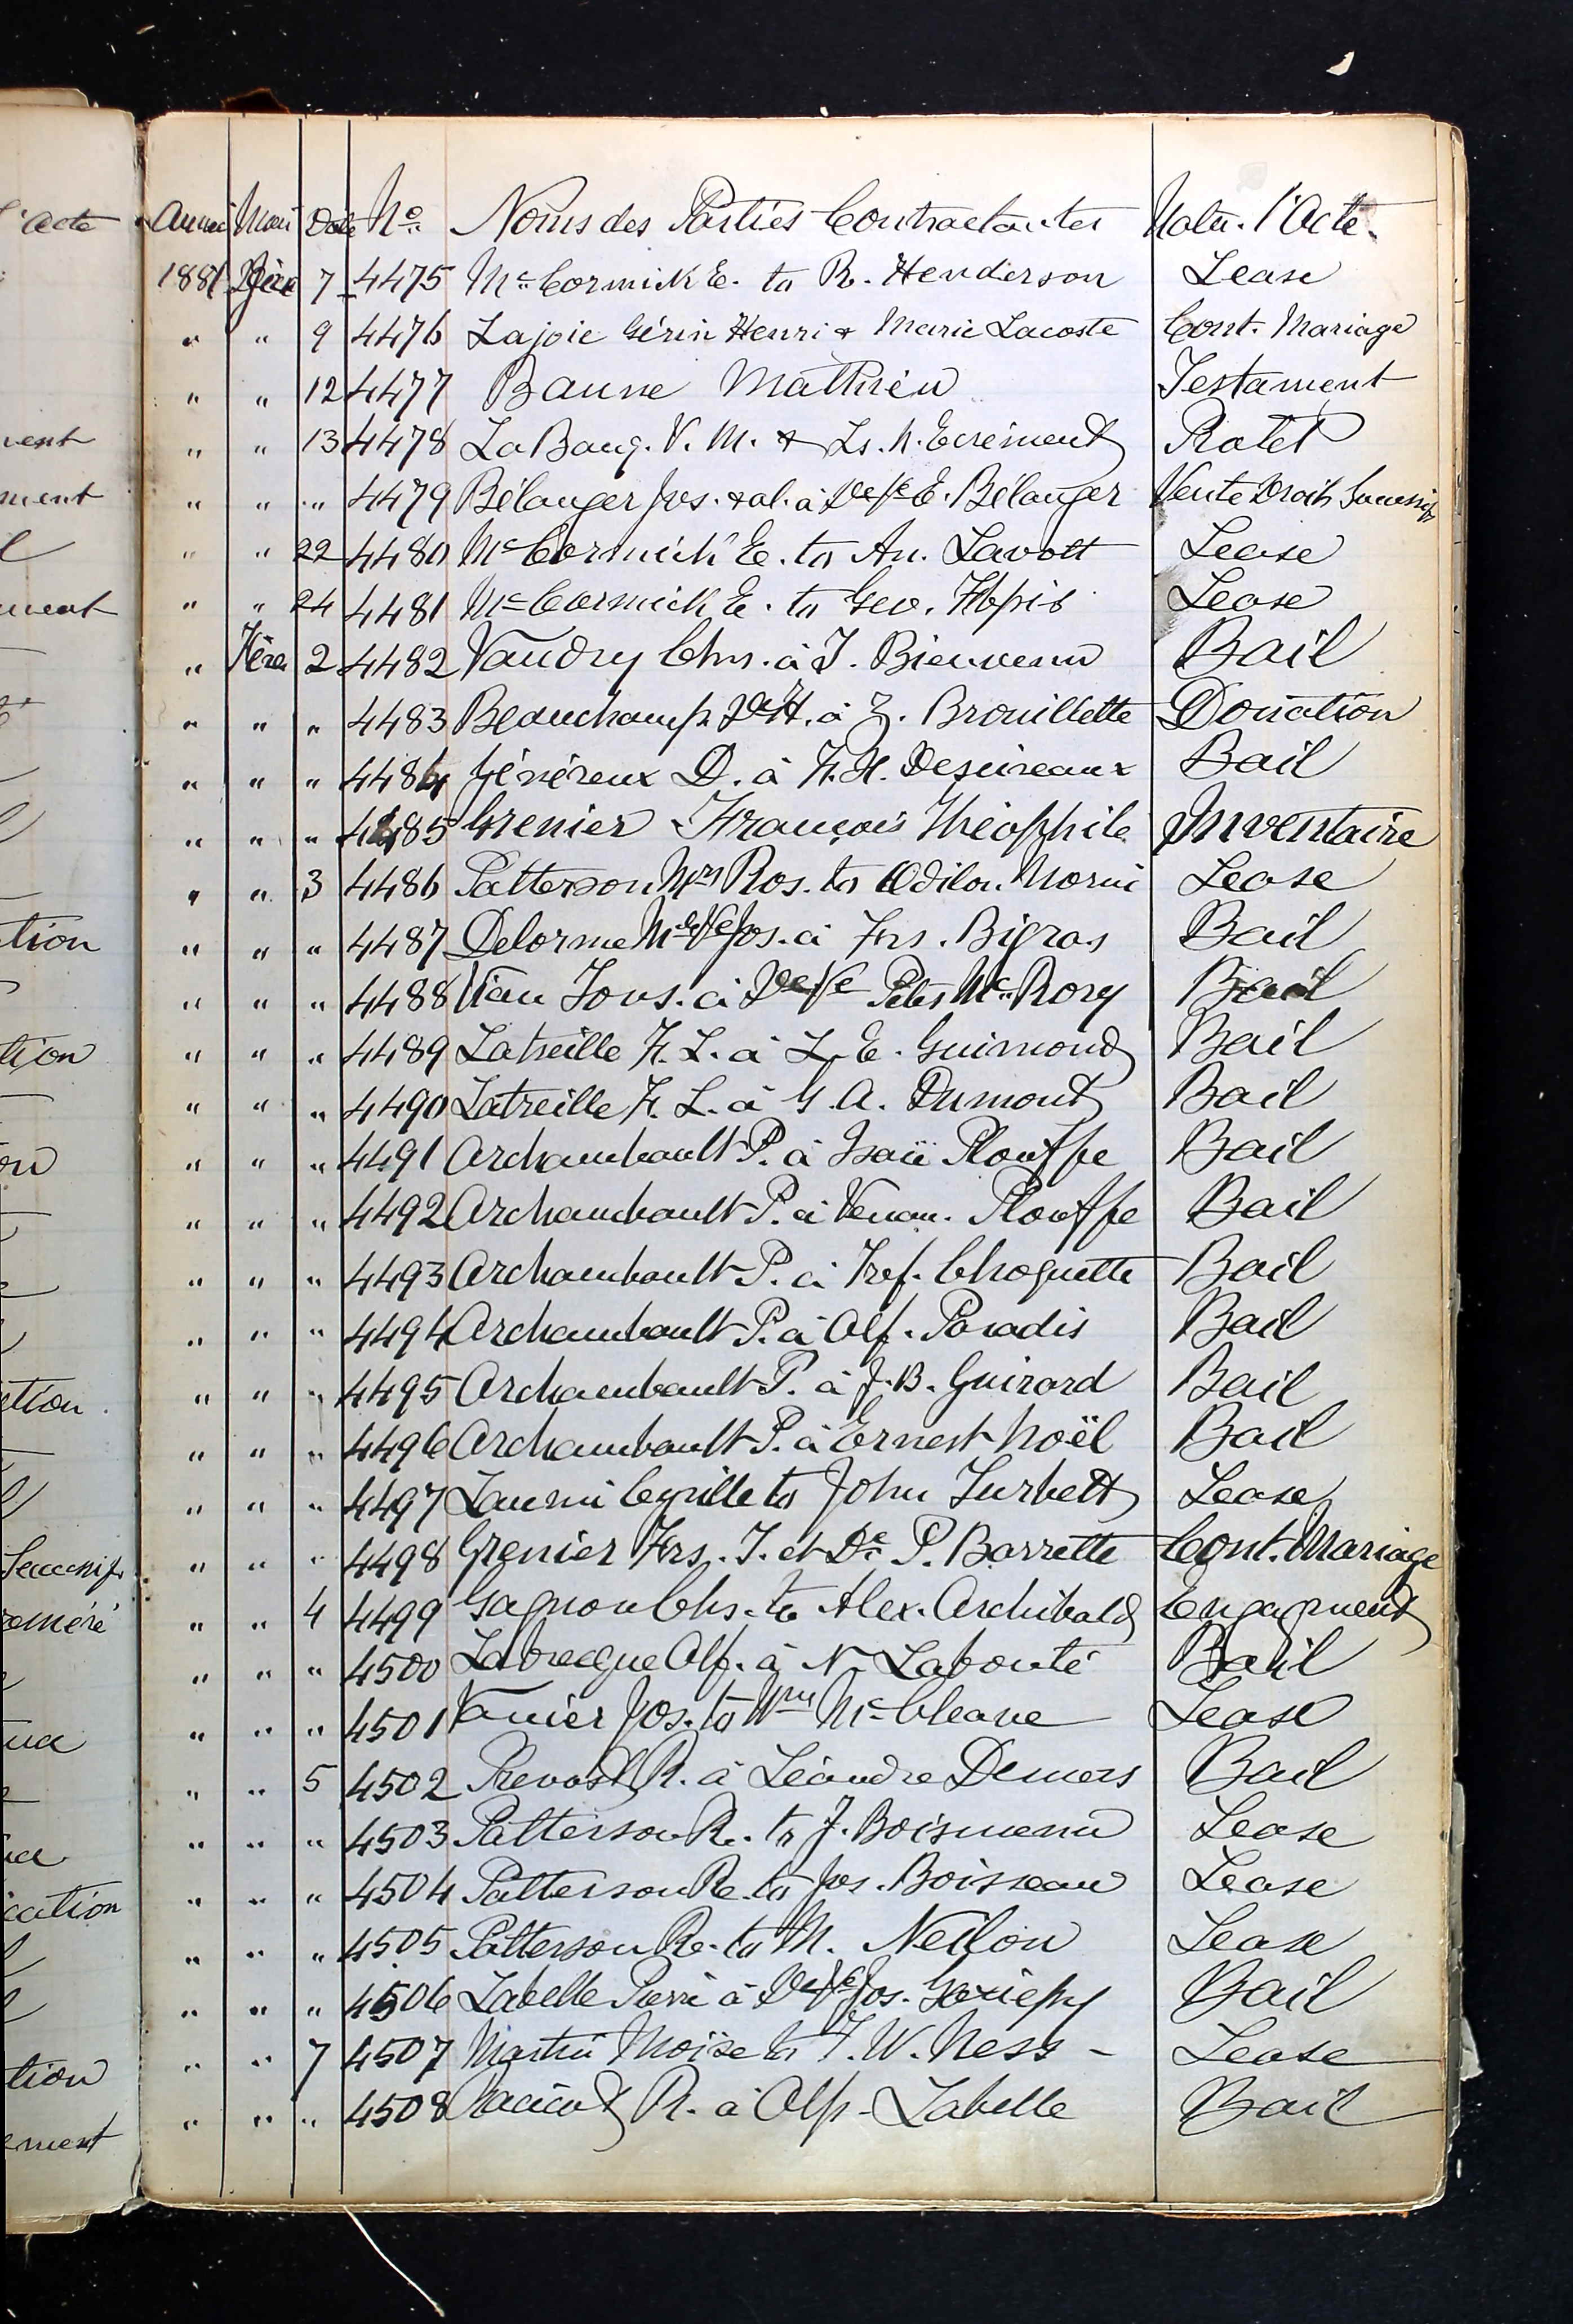 Acte
Année Mois Date No. Noms des Parties Contractantes Natu. l'Acte.
1881 7 4475 McCormick E. to R. Henderson Lease
" " 9 4476 Lajoie Gérin Henri & Marie Lacoste Cont. Mariage
" " 12 4477 Baune Mathieu Testament
" " 13 4478 La Banq. V. M. & Ls. N. Ecrement
" " " 4479 Bélanger Jos. & al. à Dve E. Bélanger Vente Droits Successifs
" " 22 4480 McCormick E. to An. Lavott Lease
" " 24 4481 McCormick E. to Geo. Lease
" Févr. 2 4482 Vaudry Chs. à J. Bienvenu Bail
" " " 4483 Beauchamp H. à Z. Brouillette Donation
" " " 4484 Généreux D. à F. H. Bail
" " " 4485 Grenier François Théophile Inventaire
" " 3 4486 Patterson Mrs Ros. to Odilon Morin Lease
" " " 4487 Delorme Jos. à Frs. Bigras Bail
" " " 4488 Viau à Dve Ve McRory Bail
" " " 4489 Latreille F. L. à L. E. Guimond Bail
" " " 4490 Latreille F. L. à G. A. Dumont Bail
" " " 4491 Archambault P. à Isaïe Plouffe Bail
" " " 4492 Archambault P. à Venan. Plouffe Bail
" " " 4493 Archambault P. à Tref. Choquette Bail
" " " 4494 Archambault P. à Alf. Paradis Bail
" " " 4495 Archambault P. à J. B. Guirard Bail
" " " 4496 Archambault P. à Ernest Noël Bail
" " " 4497 Laurin Cyrille to John Turbett Lease
" " " 4498 Grenier Frs. T. et De P. Barrette Cont. Mariage
" " 4 4499 Gagnon Chs. to Alex. Archibald Engagment
" " " 4500 Labrecque Alf. à N. Labonté Bail
" " " 4501 Vanier Jos. to Wm McCleave Lease
" " 5 4502 Prevost R. à Léandre Demers Bail
" " " 4503 Patterson R. to J. Boismenu Lease
" " " 4504 Patterson R. to Jos. Boisseau Lease
" " " 4505 Patterson R. to M. Neilon Lease
" " " 4506 Labelle Pierre à Dve Jos. Gariepy Bail
" " 7 4507 Martin Moïse to F. W. Ness - Lease
" " " 4508 Racicot R. à Alp. Labelle Bail